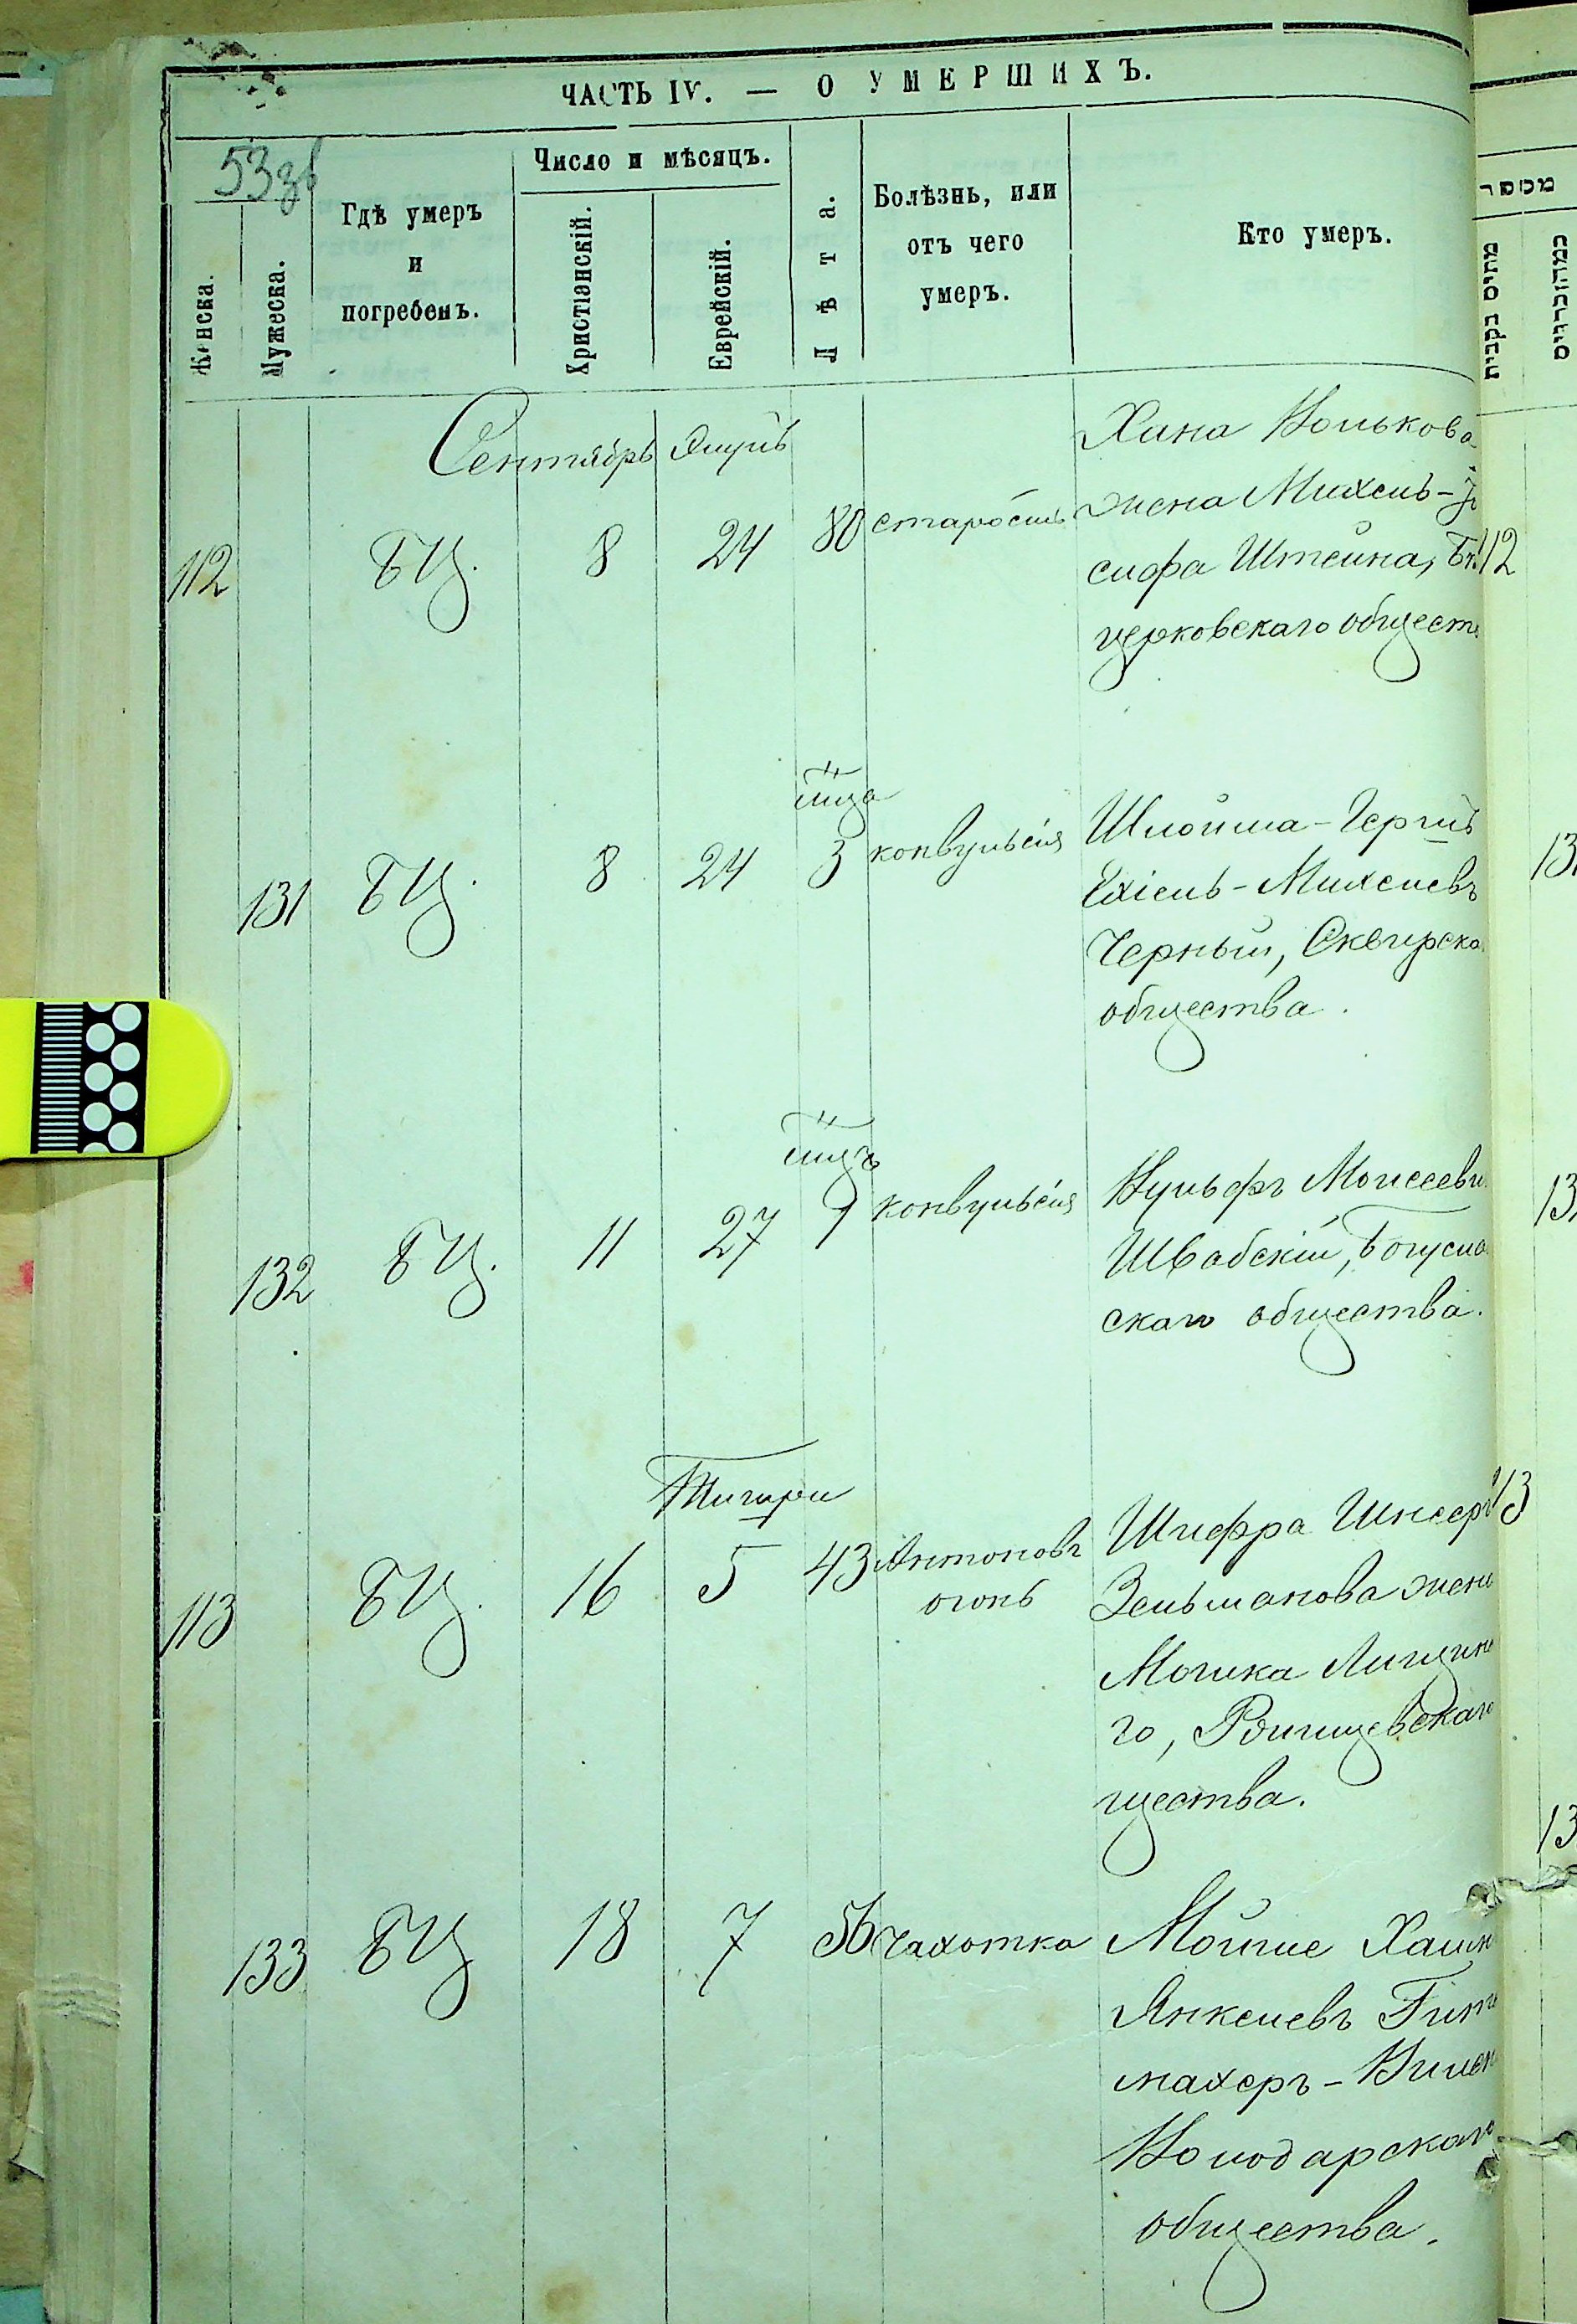 ЧАСТЬ IV. — О УМЕРШИХЪ.
53 зв
Женска.
Мужеска.
Гдѣ умеръ
и
погребенъ.
Число и мѣсяцъ.
Христіянскій.
Еврейскій.
Лѣта.
Болѣзнь, или
отъ чего
умеръ.
Кто умеръ.
Сентябрь Элулъ
112 БЦ. 8 24 80 старость
Хана Волькова
жена Михель-Іо
сифа Штейна, Бѣ
церковскаго общест
131 БЦ. 8 24 3 мца конвульсія
Шлойма-Гершъ
Ехіель-Михелевъ
Черный, Сквирска
общества.
132 БЦ. 11 27 9 мцъ конвульсія
Вульфъ Моисееви
Швабскій, Богусла
скаго общества.
Тишри
113 БЦ. 16 5 43 Антоновъ
огонь
Шифра Шнеер
Зельманова жена
Мошка Лищин
го, Рэшищевскаго
щества.
133 БЦ 18 7 56 Чахотка
Мойше Хаим
Янкелевъ
махеръ-
Володарскаго
общества.
מספר
מתים נקבית
112
13
13
113
13